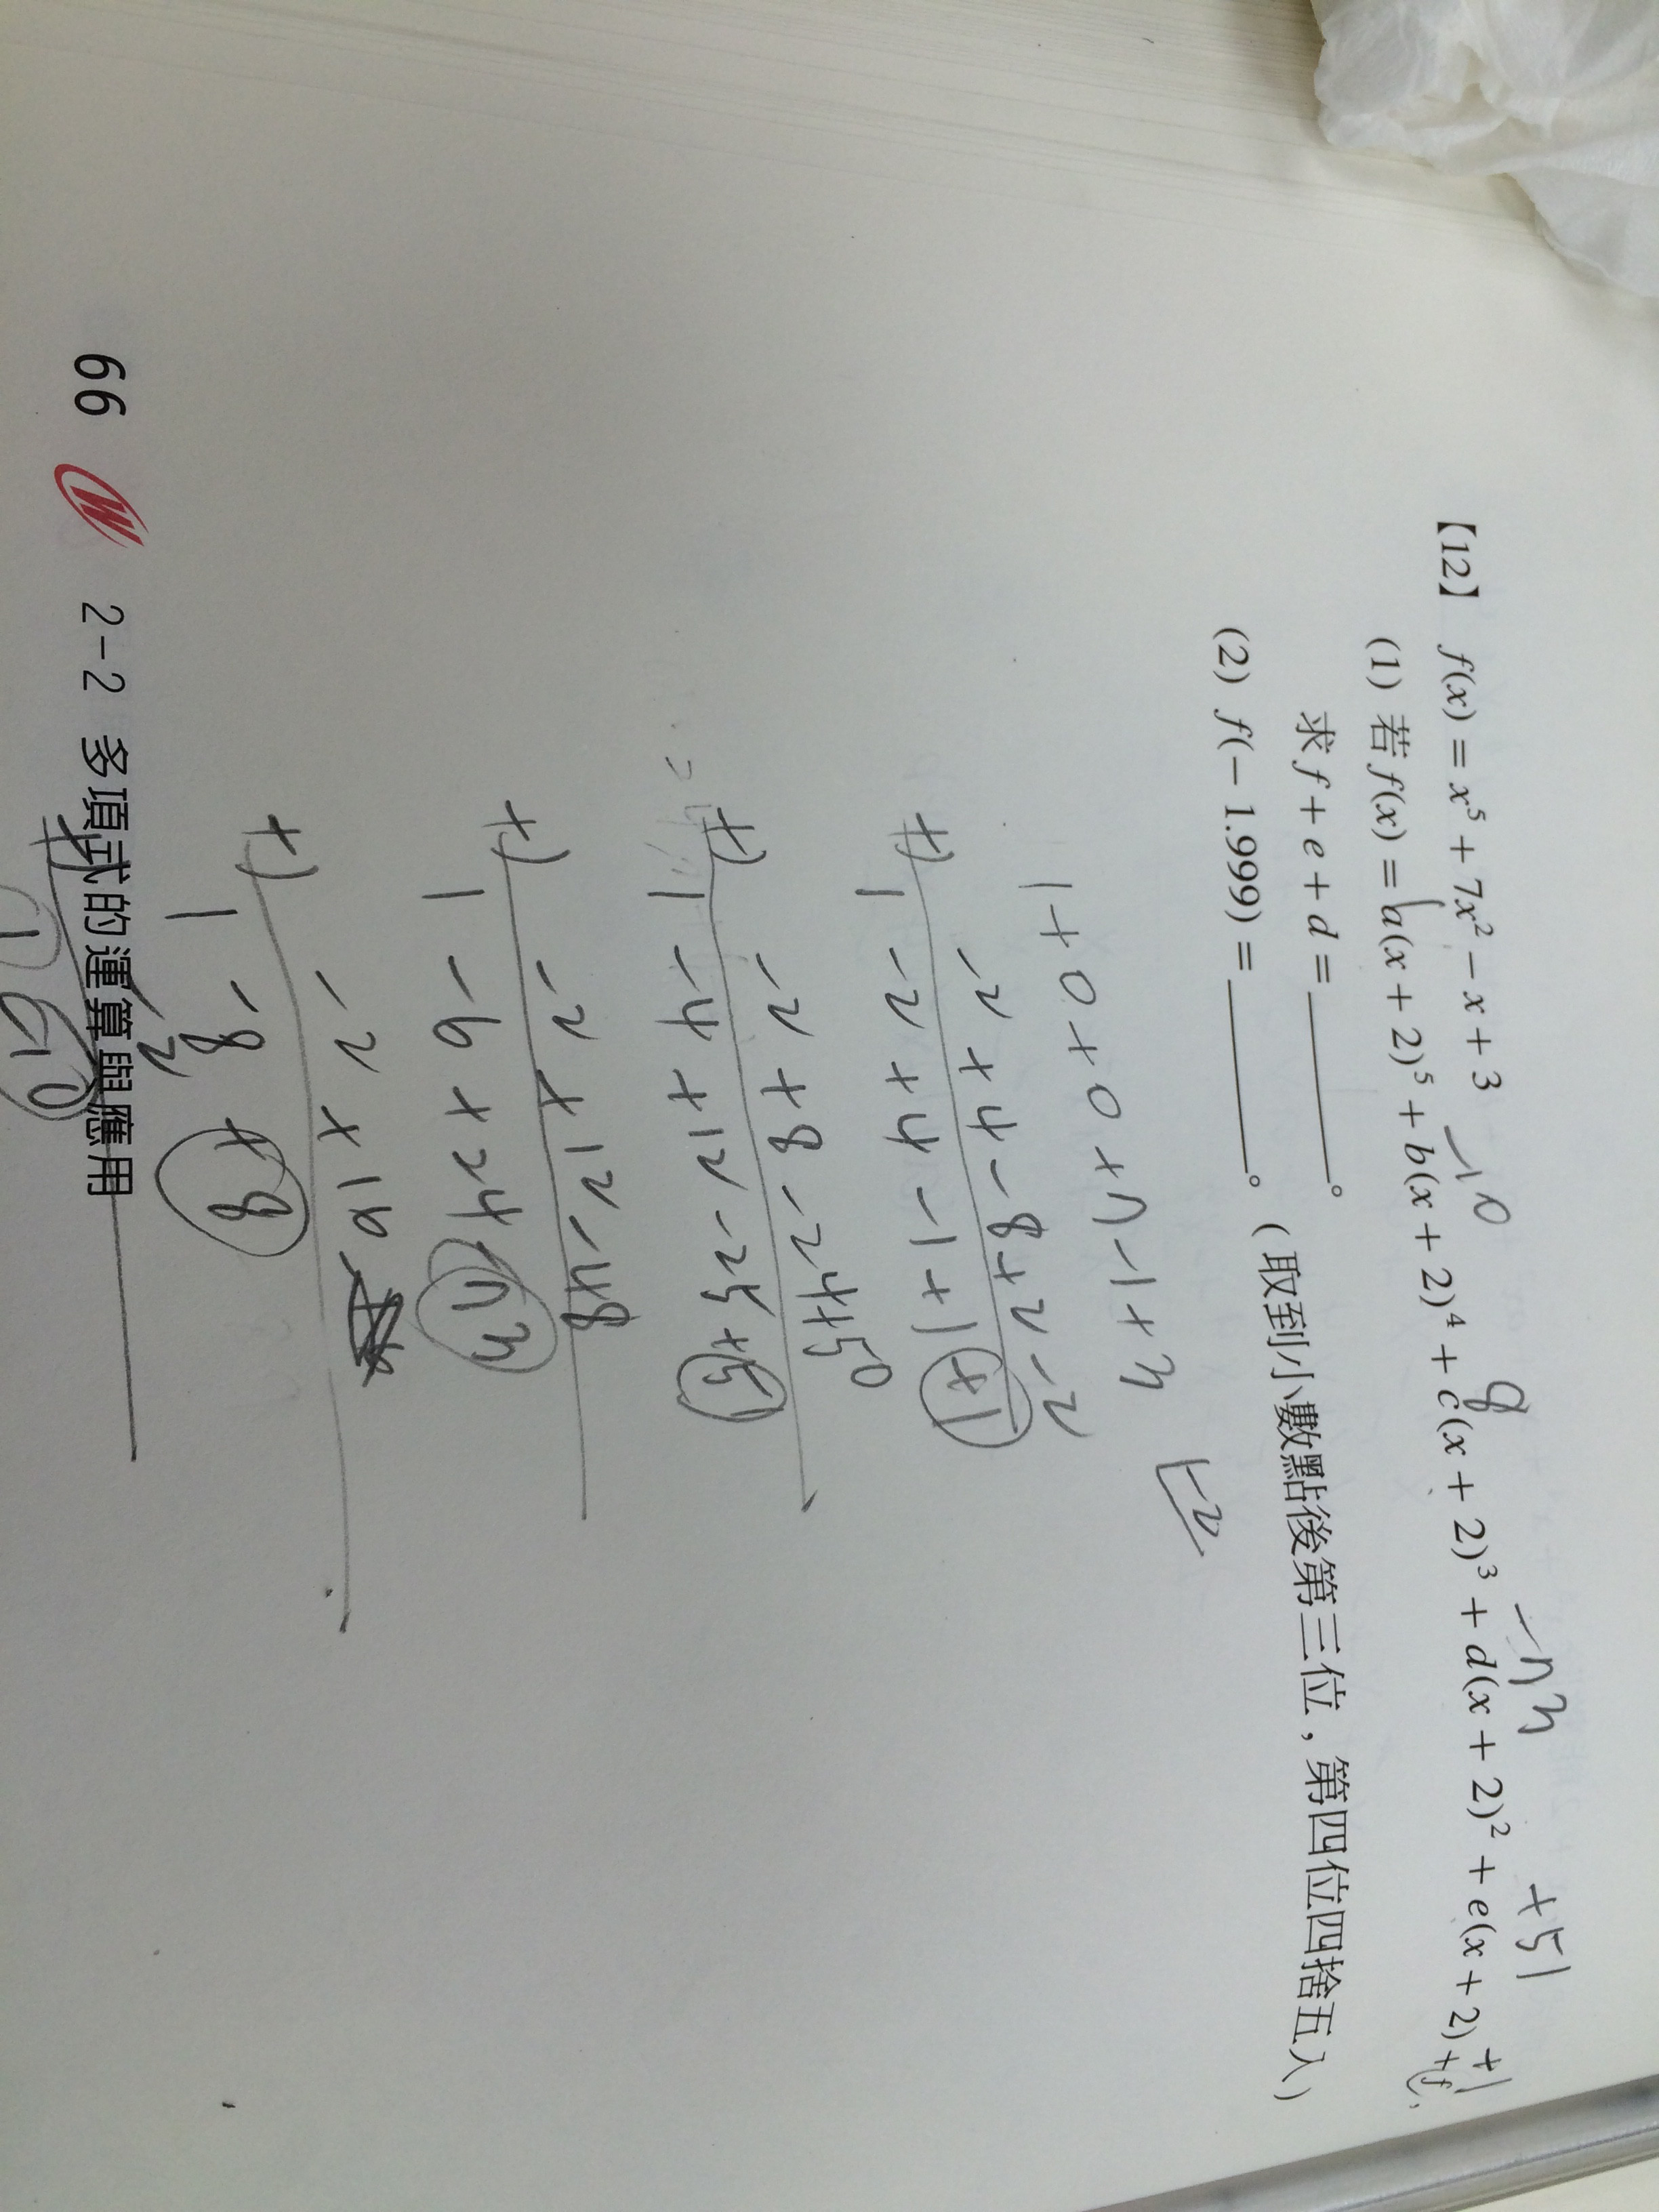 【12】 f(x) = x⁵ + 7x² − x + 3
−10 8 −73 +51 +1
(1) 若 f(x) = a(x + 2)⁵ + b(x + 2)⁴ + c(x + 2)³ + d(x + 2)² + e(x + 2) + f,
求 f + e + d = ________。
(2) f(−1.999) = ________。(取到小數點後第三位，第四位四捨五入)
1+0+0+7−1+3 −2
−2+4−8+2−2
+)
1−2+4−1+1 +1
−2+8−24+50
+)
1−4+12−25+51
−2+12−48
+)
1−6+24 −73
−2+16
+)
1−8+8
−2
66 2-2 多項式的運算與應用